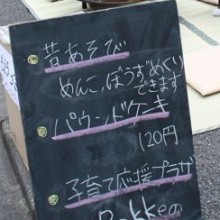 昔あそび
めんこ、ぼうずめくり
できます
パウンドケーキ
120円
子育て応援プラザ
Pokkeの